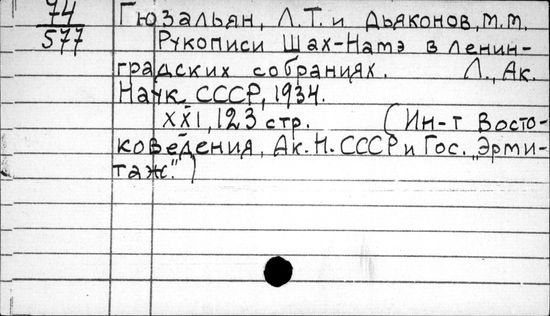 74
577
Гюзальян, Л.Т. и Дьяконов, М.М.
Рукописи Шах-Намэ в ленин-
градских собраниях. Л., Ак.
Наук СССР, 1934.
XXI, 123 стр. (Ин-т Восто-
коведения, Ак. Н. СССР и Гос. „Эрми-
таж.")